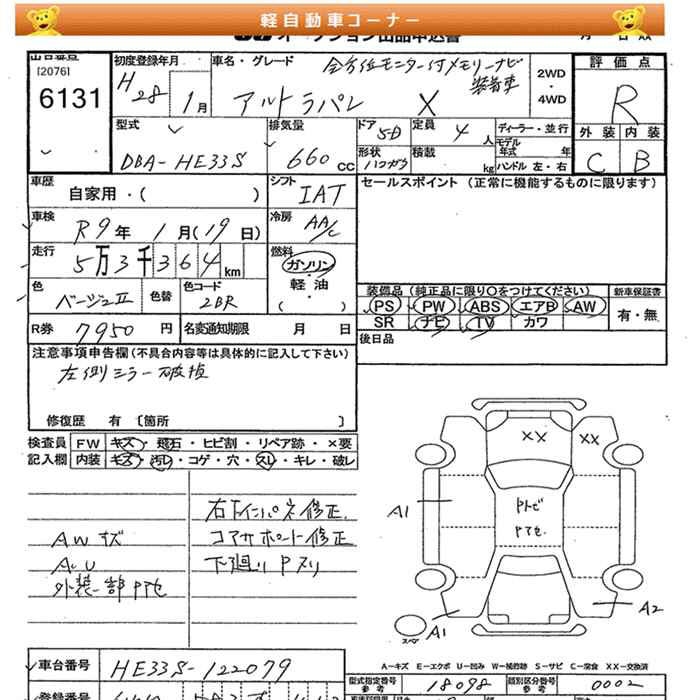 軽自動車コーナー
[2076]
6131
初度登録年月
H28 1月
車名・グレード
全方位モニター付メモリーナビ
装着車
アルトラパン X
2WD
・
4WD
評価点
R
外装 内装
C B
型式
DBA-HE33S
排気量
660 CC
ドア 5D
形状
定員 4 人
積載 kg
ディーラー・並行
モデル年式 年
ハンドル 左・右
車歴
自家用・( )
シフト
IAT
セールスポイント (正常に機能するものに限ります)
車検
R9年 1月(19日)
冷房
AA/C
走行
5万3千364km
燃料
ガソリン
・
軽油
・
( )
色
ベージュII
色替
色コード
2BR
装備品 (純正品に限り○をつけてください)
PS PW ABS エアB AW
SR ナビ TV カワ
新車保証書
有・無
R券 7950 円
名変通知期限 月 日
後日品
注意事項申告欄(不具合内容等は具体的に記入して下さい)
左側ミラー破損
修復歴 有 〔箇所 〕
検査員
記入欄
FW キズ・飛石・ヒビ割・リペア跡・×要
内装 キズ・汚レ・コゲ・穴・スレ・キレ・破レ
右下インパネ修正
AWキズ
コアサポート修正
AU
下廻りPヌリ
外装一部Pアセ
XX XX
Pトビ
Pアセ
A1
A1
A2
スペア
車台番号
HE33S-122079
A-キズ E-エクボ U-凹み W-補修跡 S-サビ C-腐食 XX-交換済
型式指定番号
参考
18098
類別区分番号
参考
0002
登録番号